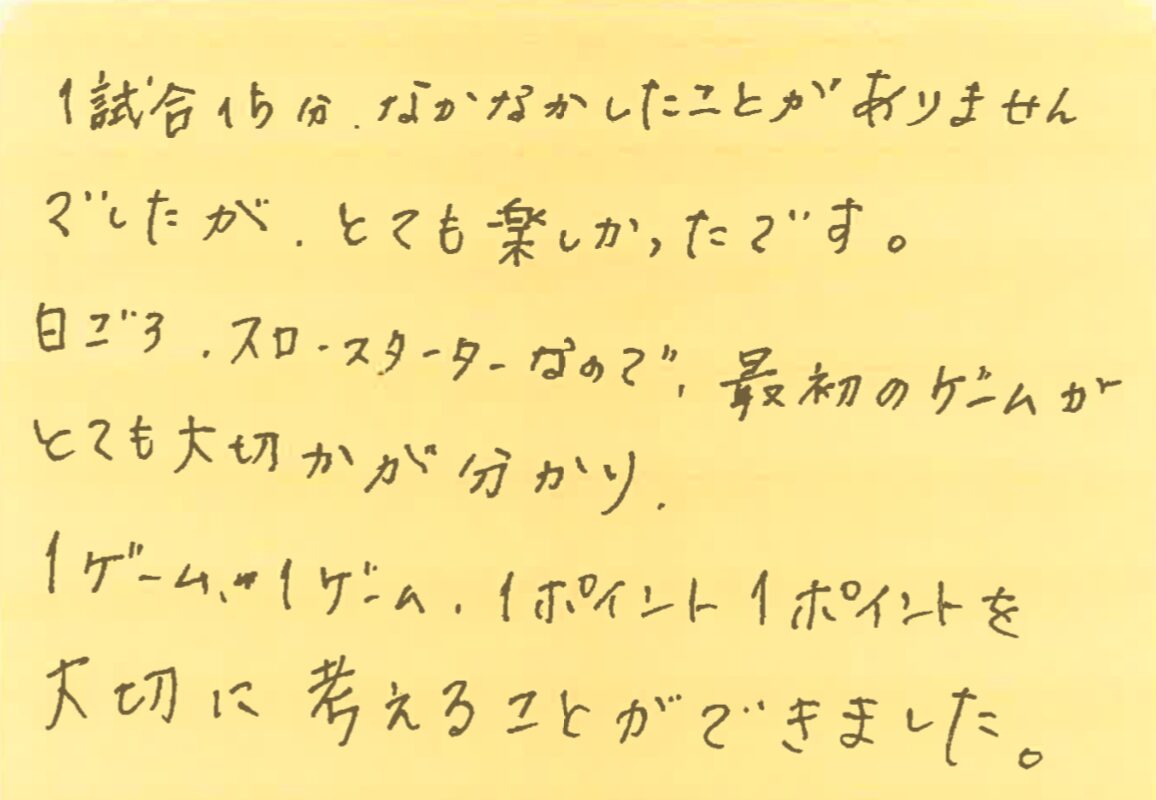 1試合15分、なかなかしたことがありません
でしたが、とても楽しかったです。
日ごろ、スロースターターなので、最初のゲームが
とても大切かが分かり、
1ゲーム1ゲーム、1ポイント1ポイントを
大切に考えることができました。